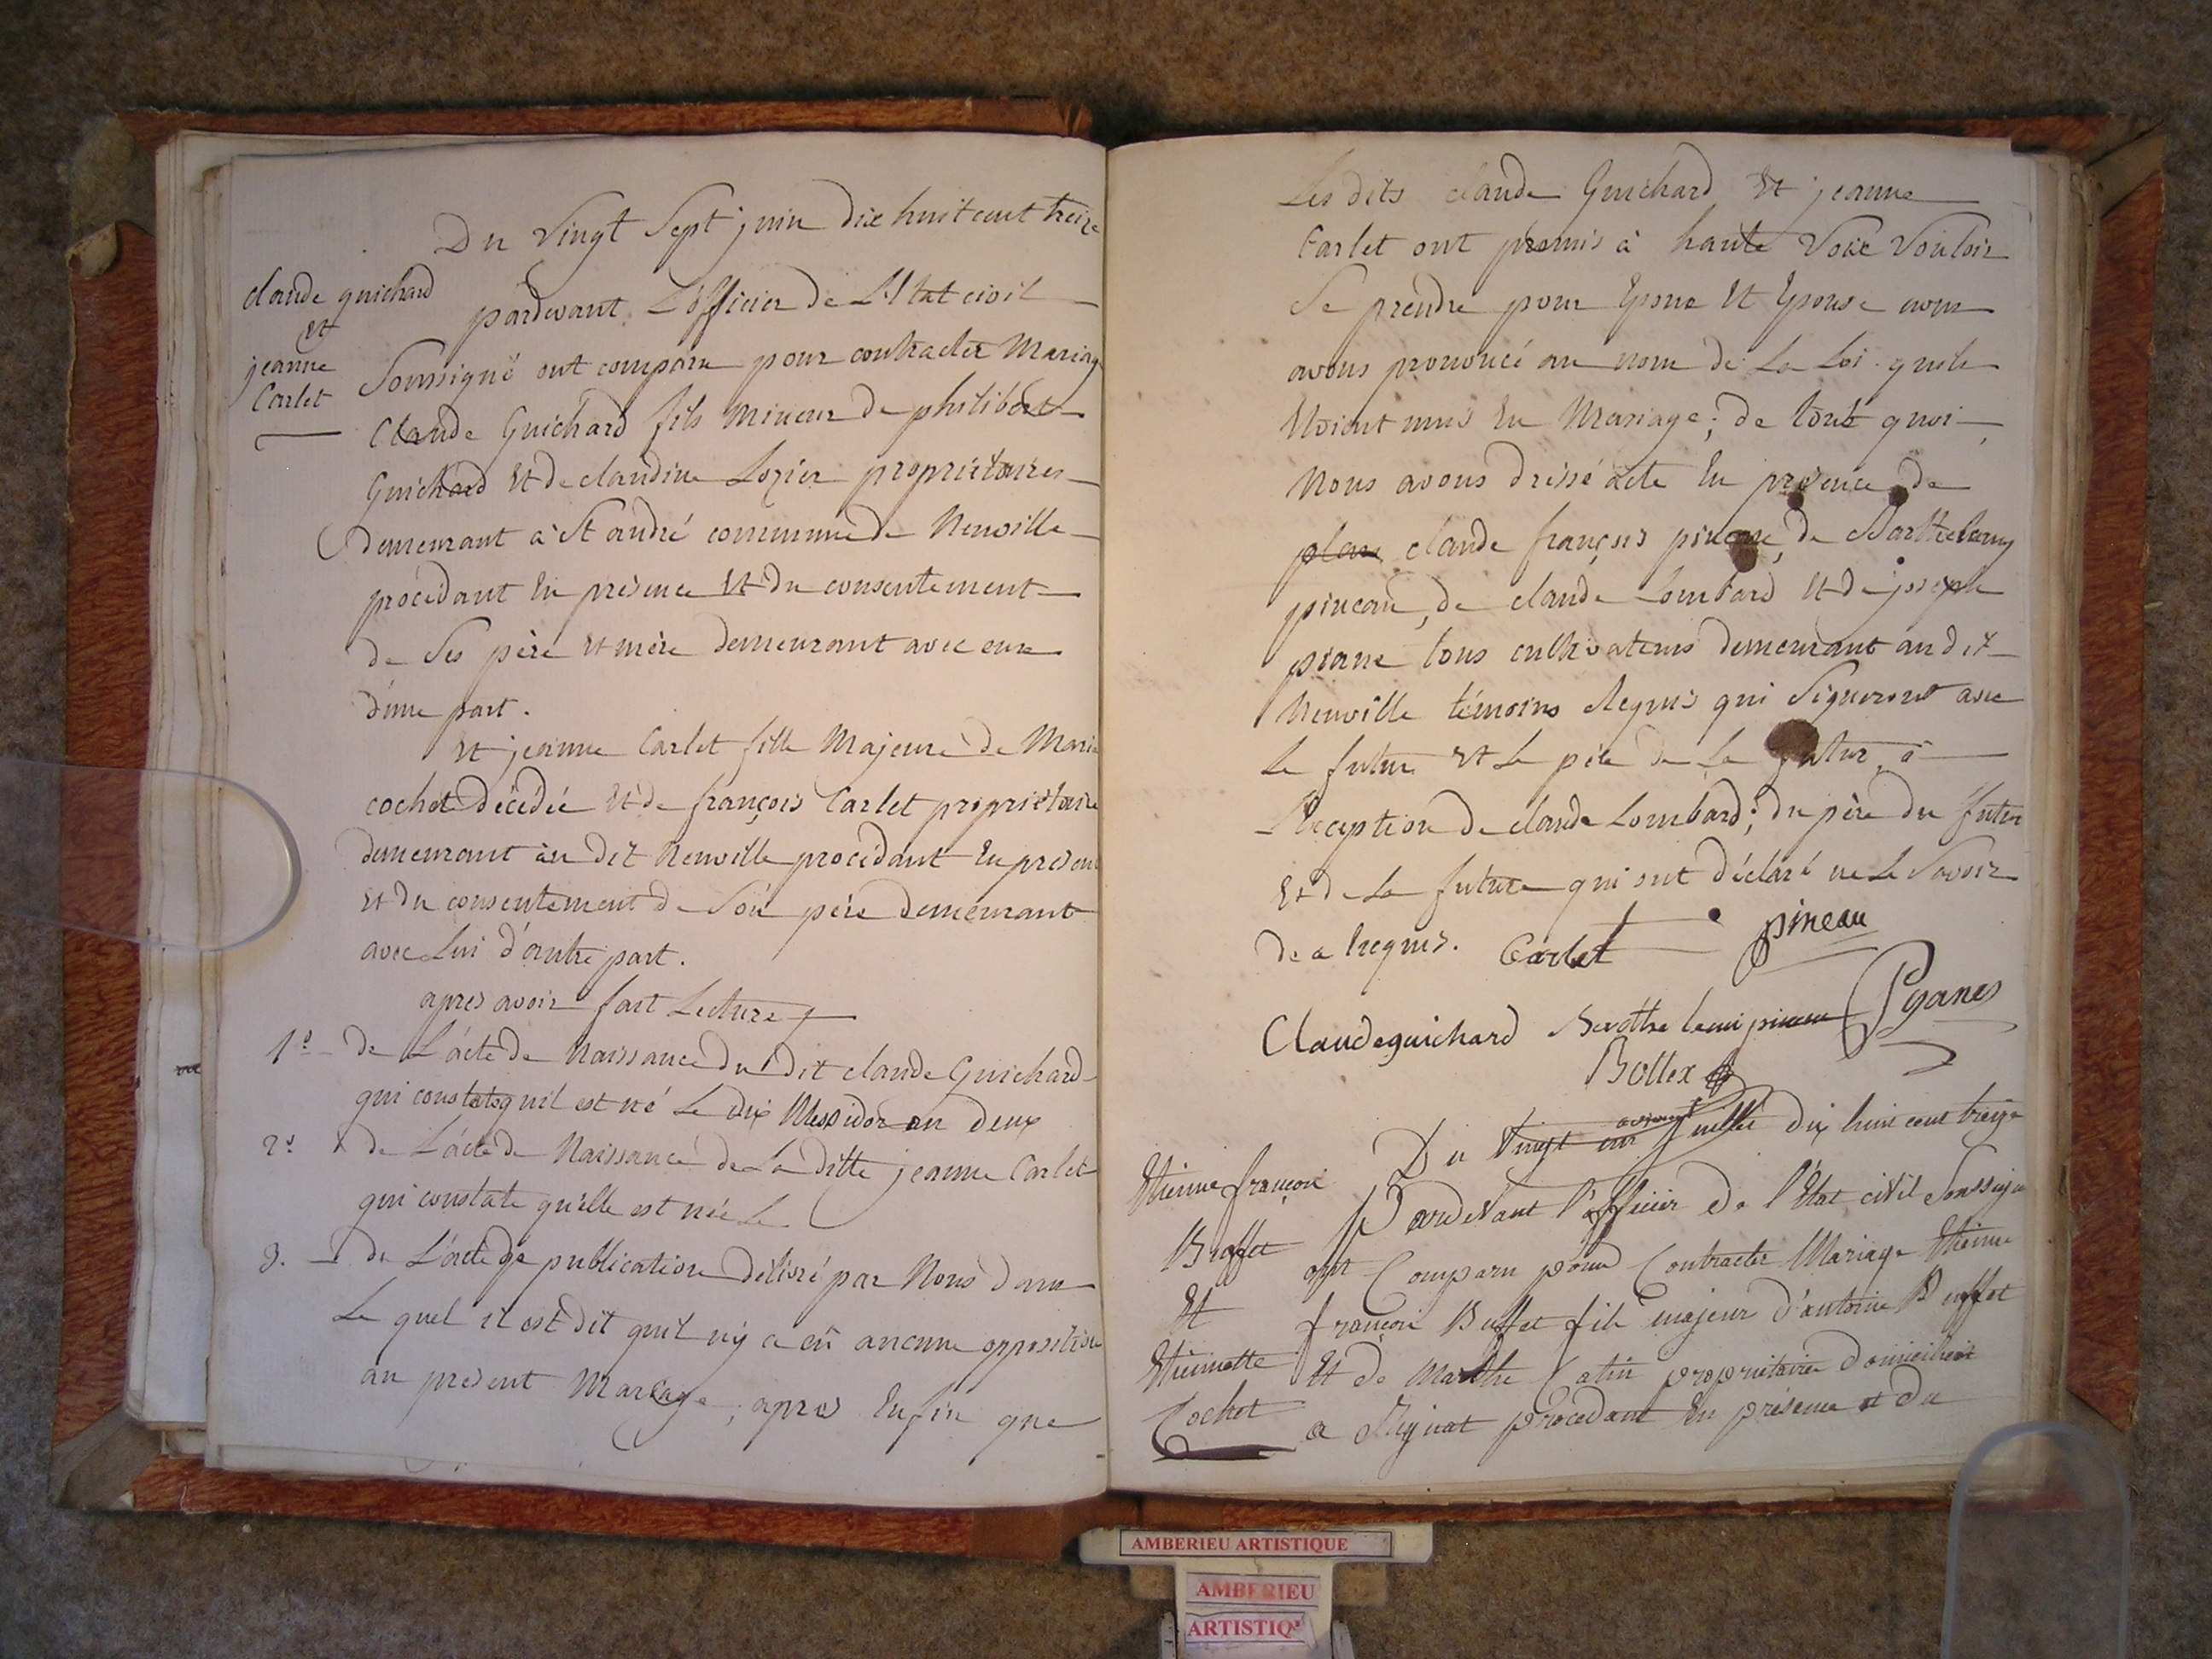 Du Vingt Sept juin dix huit cent treize
claude guichard
et
jeanne
Carlet
pardevant L'officier de L'Etat civil
Soussigné ont comparu pour contracter Mariage
Claude Guichard fils Mineur de philibert
Guichard Et de claudine Lozier propriétaires
demeurant à St andré commune de Neuville
procédant En présence Et du consentement
de Ses père et mère demeurant avec eux
d'une part.
Et jeanne Carlet fille Majeure de Marie
cochet décédée Et de françois Carlet propriétaire
demeurant au dit Neuville procédant En présence
et du consentement de Son père demeurant
avec Lui d'autre part.
apres avoir fait Lecture
1º de L'acte de Naissance du dit claude Guichard
qui constate quil est né Le dix Messidor an deux
2º de L'acte de Naissance de La ditte jeanne Carlet
qui constate qu'elle est née Le
3. de L'acte de publication délivré par Nous dans
Le quel il est dit quil n'y a eû aucune opposition
au present Mariage ; apres Enfin que
Les dits claude Guichard Et jeanne
Carlet ont promis à haute Voix Vouloir
Se prendre pour Epoux Et Epouse nous
avons prononcé au nom de La Loi quils
Etoient unis En Mariage ; de tout quoi
Nous avons dressé acte En présence de
claude françois pineau, de Barthelemy
pineau, de claude Lombard Et de joseph
piane tous cultivateurs demeurant au dit
Neuville témoins Requis qui Signeront avec
Le futur et Le père de La futur, à
L'Exception de claude Lombard ; du père du futur
Et de La future qui ont déclaré ne Le Savoir
de ce Enquis. Carlet pineau
Claude guichard Barthelemi pineau Pyanes
Bollex
Du Vingt un juillet dix huit cent treize
Etienne françois
Buffet
Et
Etiennette
Cochet
Pardevant l'officier de l'Etat civil Soussigné
ont Comparu pour Contracter Mariage Etienne
françois Buffet fils majeur d'antoine Buffet
Et de Marthe Catin propriétaires domiciliés
a Mignat procedant En présence et du
AMBERIEU ARTISTIQUE
AMBERIEU
ARTISTIQ